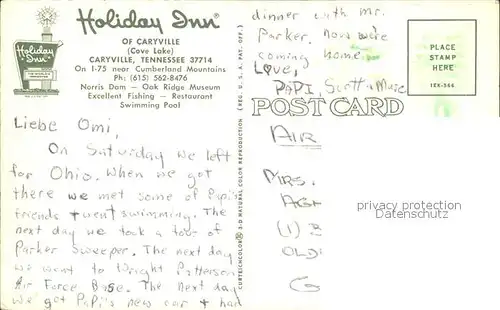 Holiday Inn
OF CARYVILLE
(Cove Lake)
CARYVILLE, TENNESSEE 37714
On I-75 near Cumberland Mountains
Ph: (615) 562-8476
Norris Dam — Oak Ridge Museum
Excellent Fishing — Restaurant
Swimming Pool
Holiday
Inn
Liebe Omi,
On Saturday we left
for Ohio. When we got
there we met some of Papi's
friends + went swimming. The
next day we took a tour of
Parker Sweeper. The next day
we went to Wright Patterson
Air Force Base. The next day
we got Papi's new car + had
dinner with Mr.
Parker. Now were
coming home.
Love,
PAPI, Scott +
CURTEICHCOLOR® 3-D NATURAL COLOR REPRODUCTION (REG. U.S.A. PAT. OFF.)
POST CARD
PLACE
STAMP
HERE
1EK-366
AIR
MRS.
AGN
(1) B
OLD
G
privacy protection
VEROPEDIA.COM